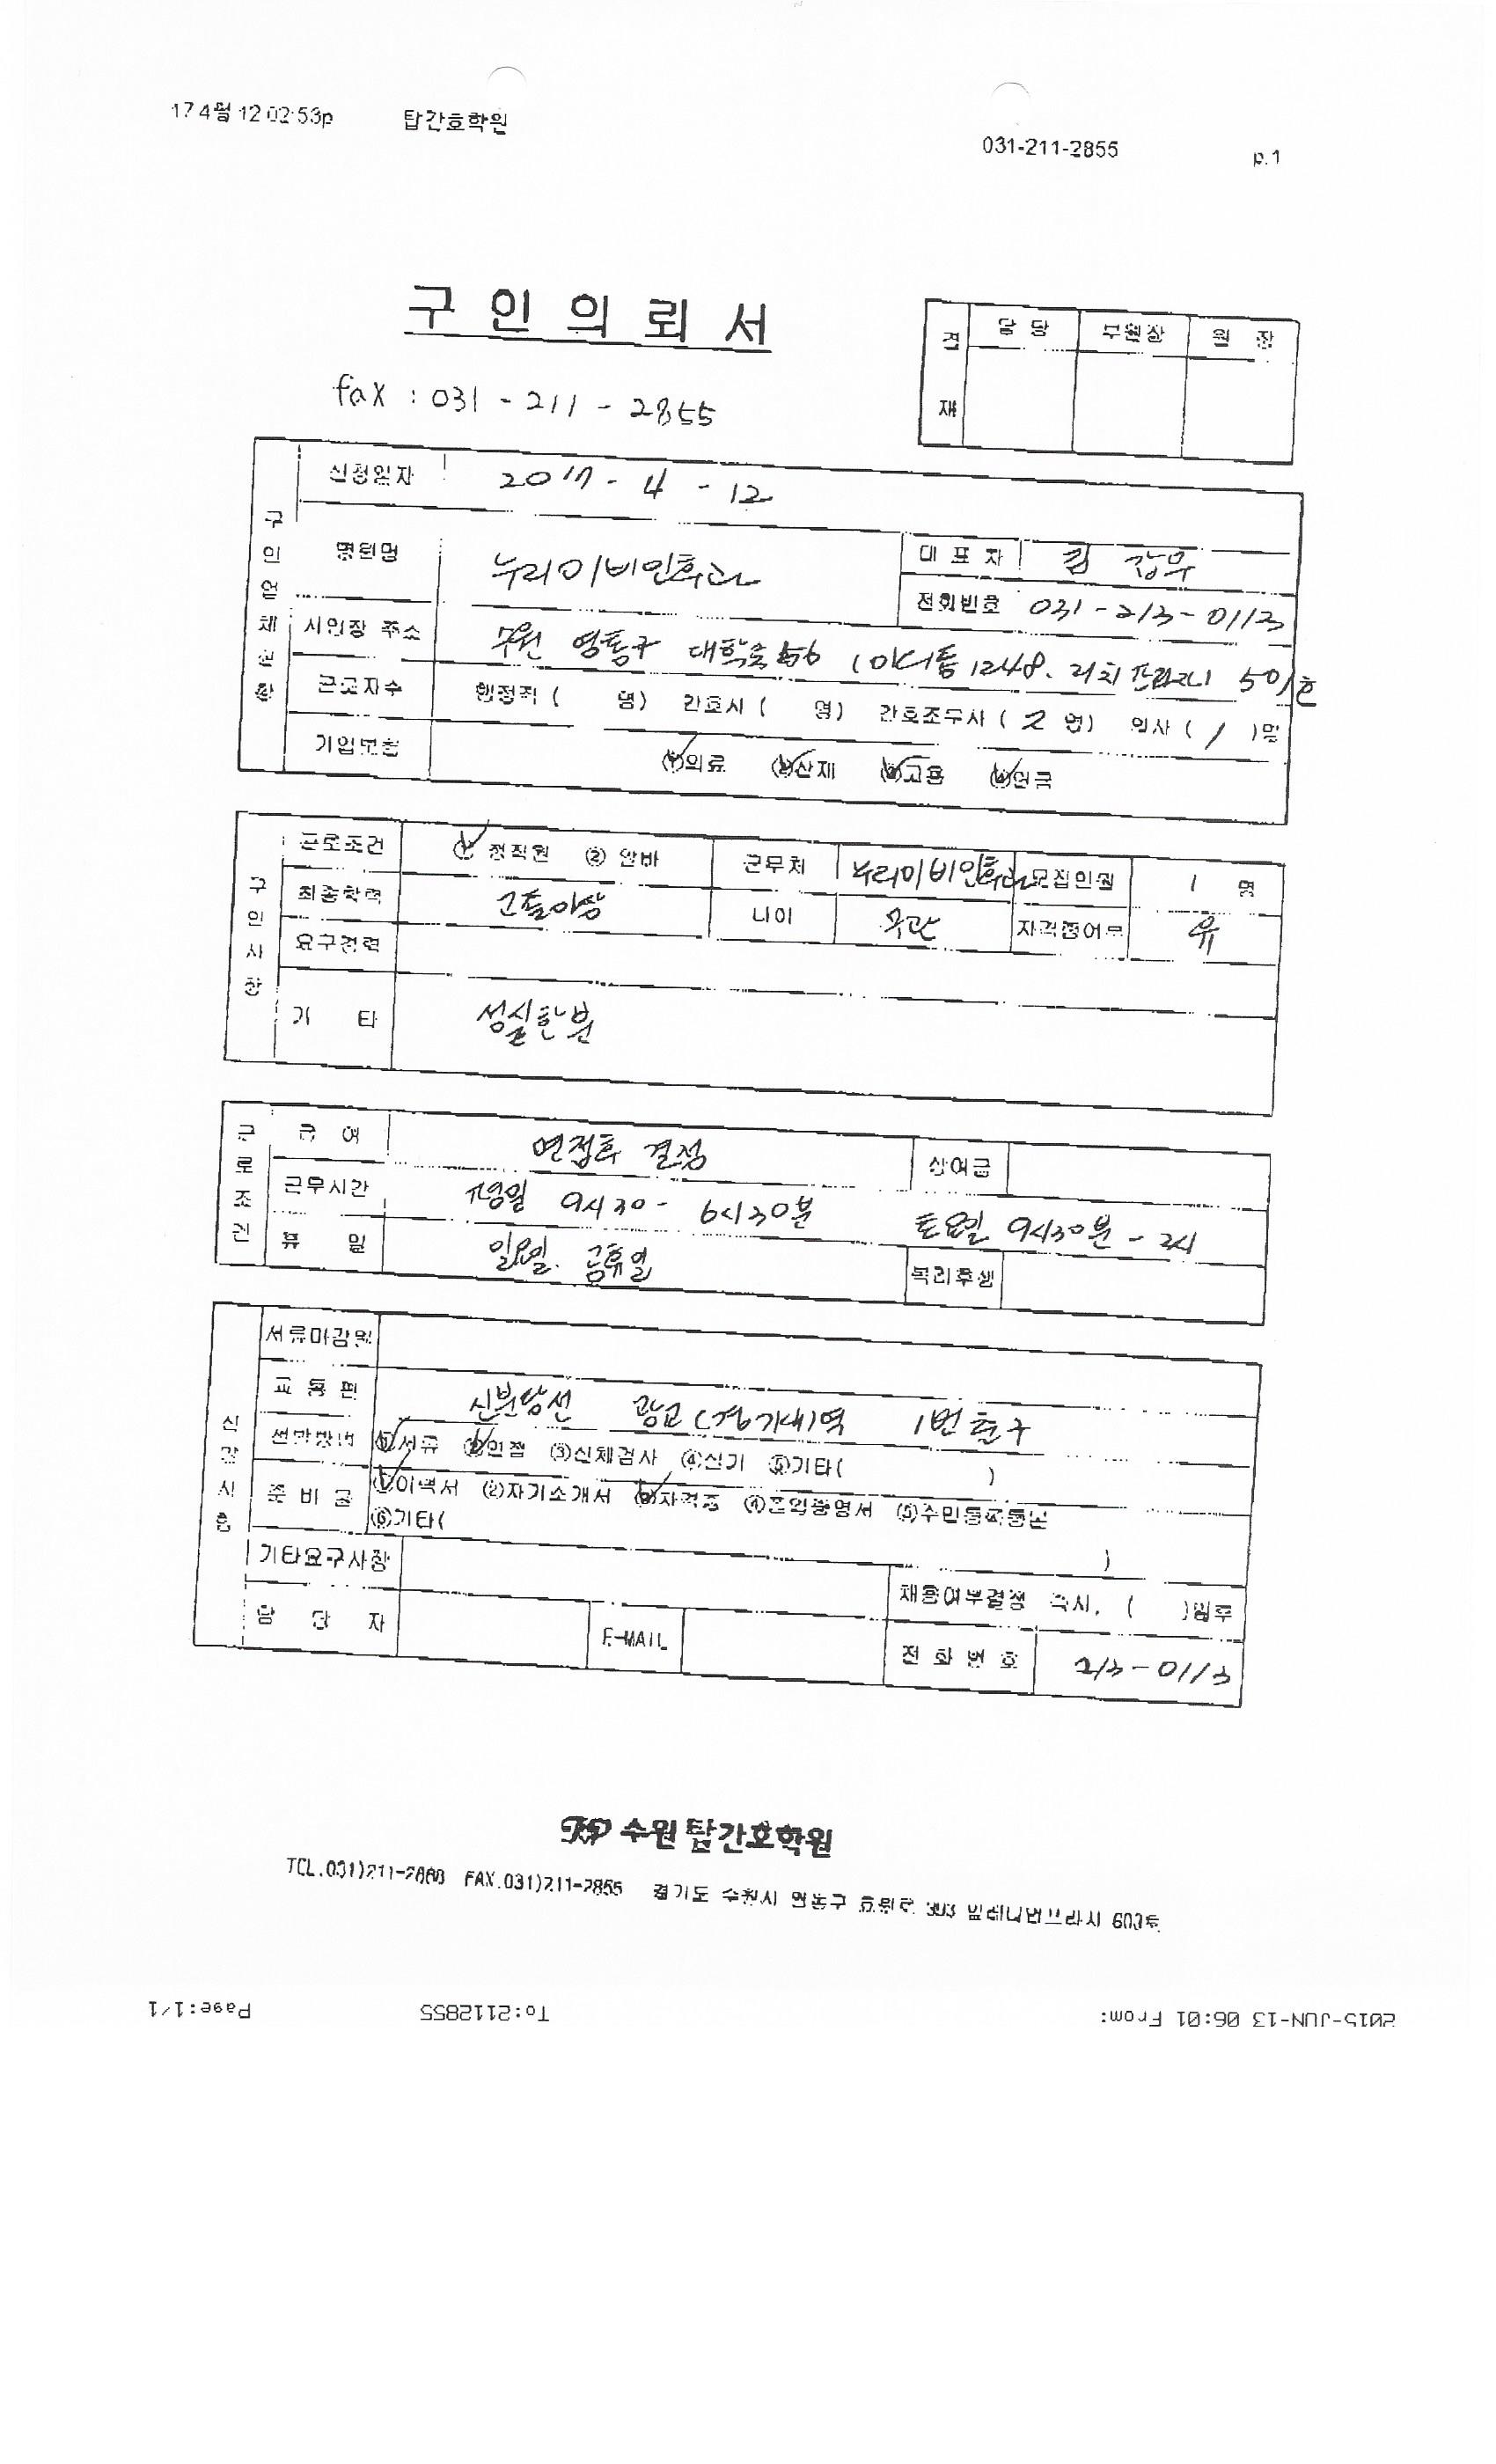 17 4월 12 02:53p 탑간호학원 031-211-2855 p.1
구인의뢰서
결재 담당 부원장 원장
fax : 031 - 211 - 2855
구인업체현황
신청일자 2017 - 4 - 12
병원명 누리이비인후과 대표자 김
전화번호 031-213-0113
사업장 주소 수원 영통구 대학로 56 1248. 리치프라자 501호
근로자수 행정직 ( 명) 간호사 ( 명) 간호조무사 ( 2 명) 의사 ( 1 )명
가입보험 ①의료 ②산재 ③고용 ④연금
구인사항
근로조건 ① 정직원 ② 알바 근무처 누리이비인후과 모집인원 1 명
최종학력 고졸이상 나이 무관 자격증여부 유
요구경력
기 타 성실한분
근로조건
급 여 면접후 결정 상여금
근무시간 평일 9시30 - 6시30분 토요일 9시30분 - 2시
휴 일 일요일. 공휴일 복리후생
서류마감일
교통편 신분당선 광교(경기대)역 1번출구
전형방법 ①서류 ②면접 ③신체검사 ④실기 ⑤기타( )
준비물 ①이력서 ②자기소개서 ③자격증 ④졸업증명서 ⑤주민등록등본
⑥기타( )
기타요구사항 채용여부결정 즉시, ( )일후
담 당 자 E-MAIL 전화번호 213-0113
수원탑간호학원
TEL.031)211-2868 FAX.031)211-2855 경기도 수원시 영통구 효원로 363 603호
2015-JUN-13 06:01 From: To:2112855 Page:1/1